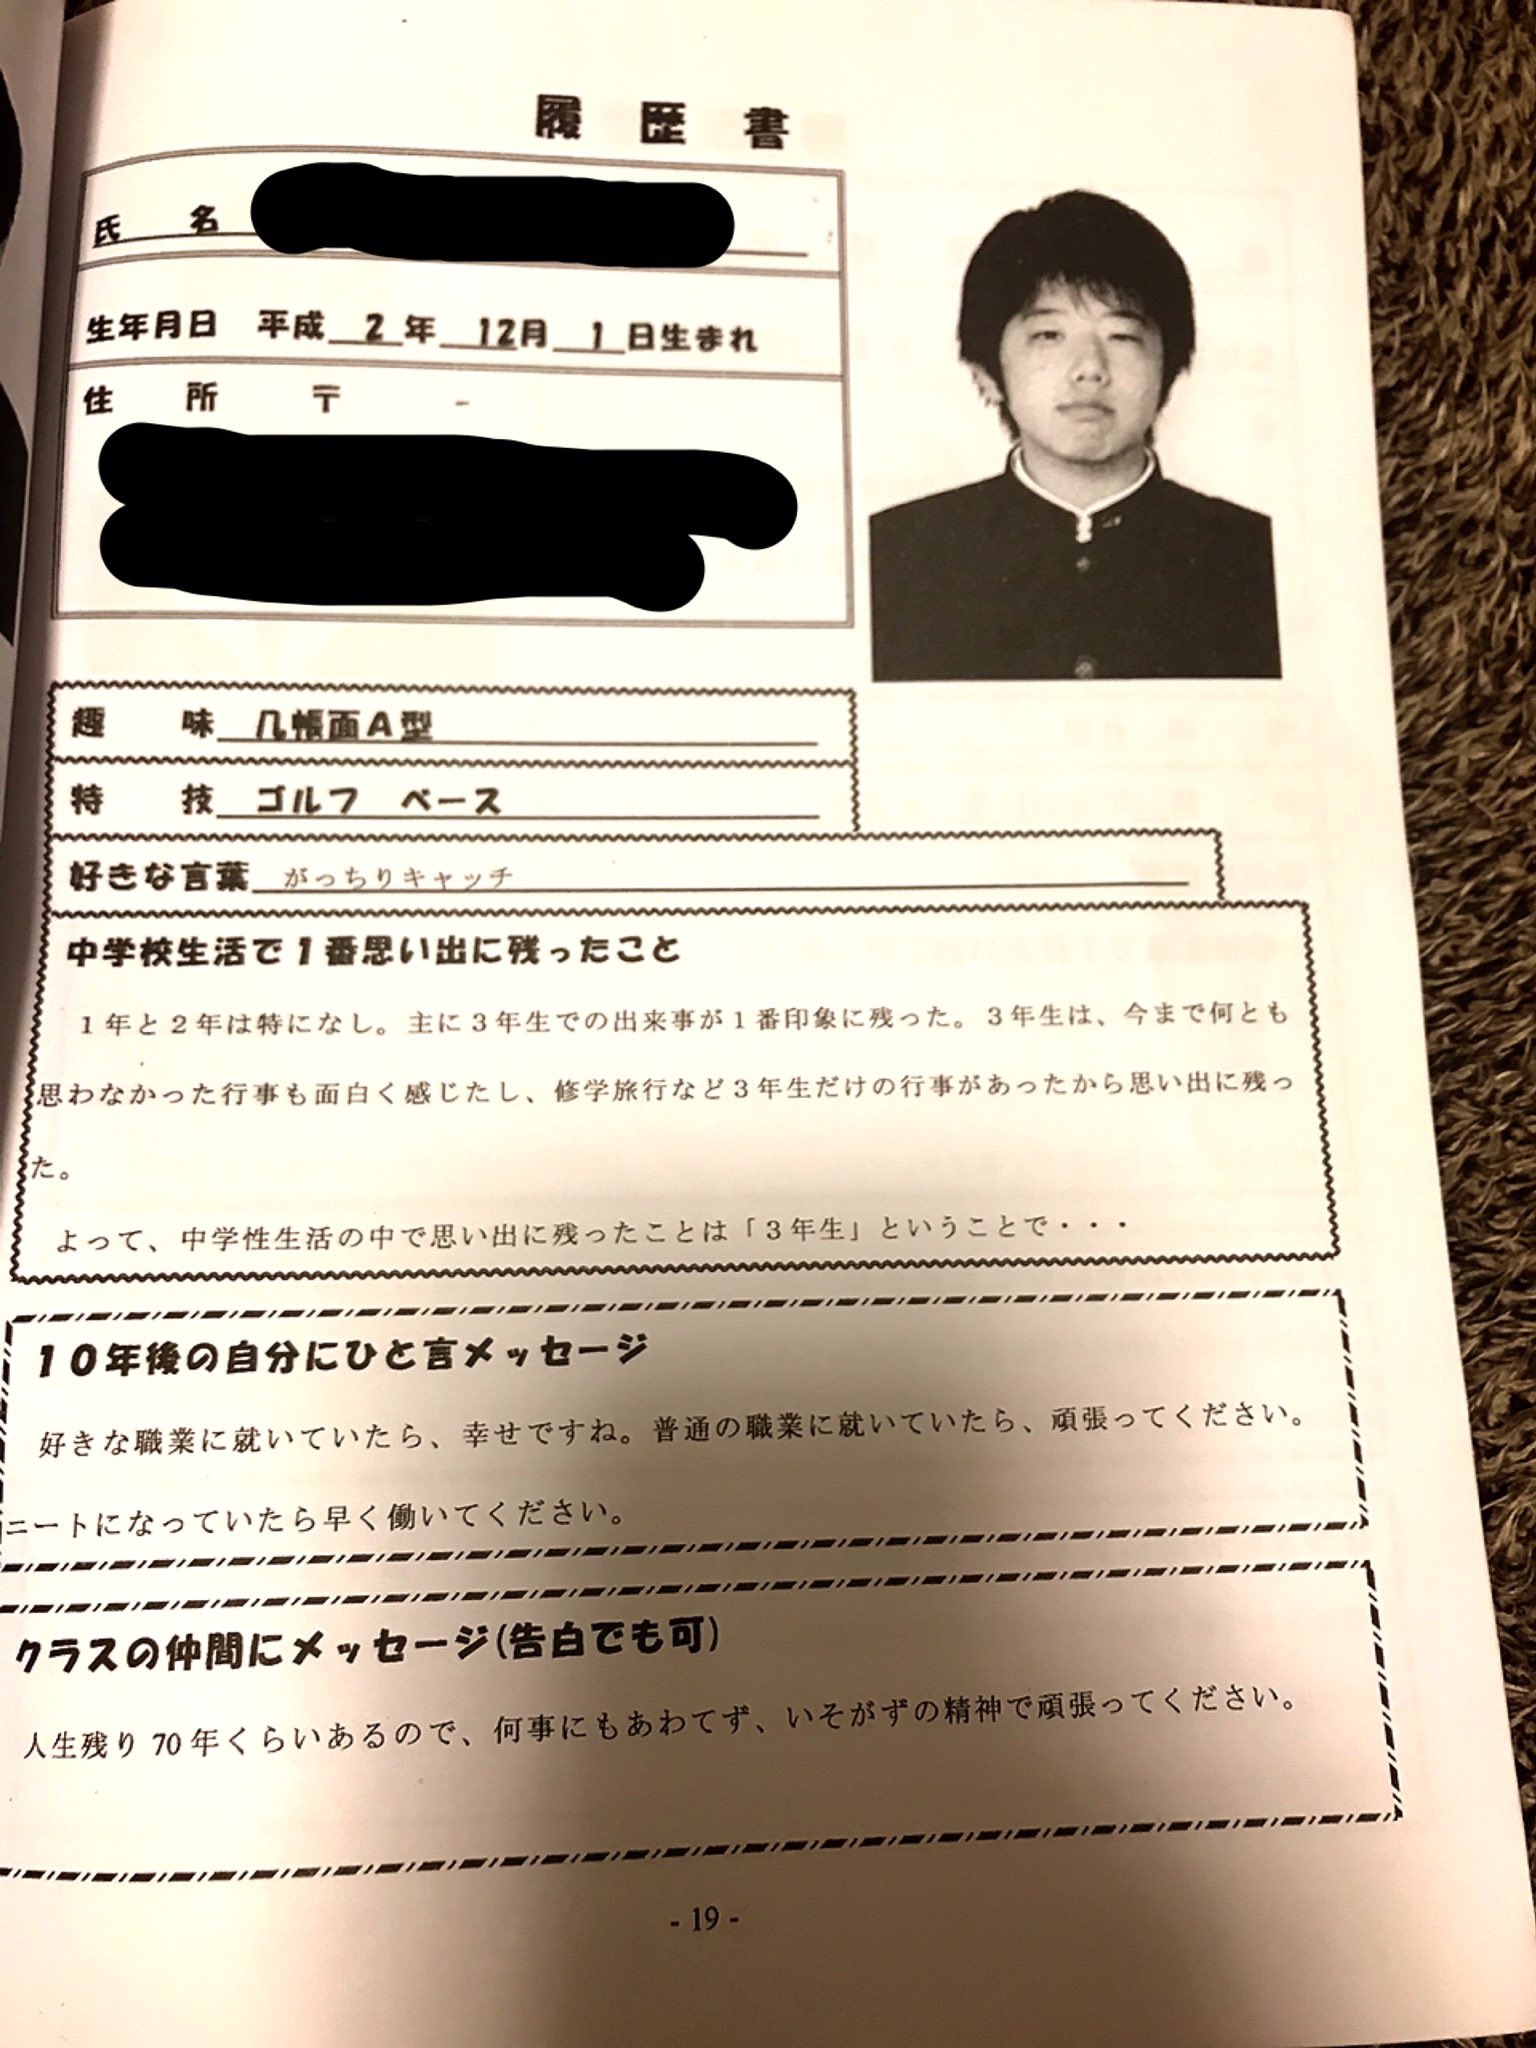 履歴書
氏名
生年月日 平成 2 年 12月 1 日生まれ
住所 〒 -
趣味 几帳面A型
特技 ゴルフ ベース
好きな言葉 がっちりキャッチ
中学校生活で1番思い出に残ったこと
1年と2年は特になし。主に3年生での出来事が1番印象に残った。3年生は、今まで何とも
思わなかった行事も面白く感じたし、修学旅行など3年生だけの行事があったから思い出に残っ
た。
よって、中学性生活の中で思い出に残ったことは「3年生」ということで・・・
10年後の自分にひと言メッセージ
好きな職業に就いていたら、幸せですね。普通の職業に就いていたら、頑張ってください。
ニートになっていたら早く働いてください。
クラスの仲間にメッセージ(告白でも可)
人生残り 70 年くらいあるので、何事にもあわてず、いそがずの精神で頑張ってください。
- 19 -